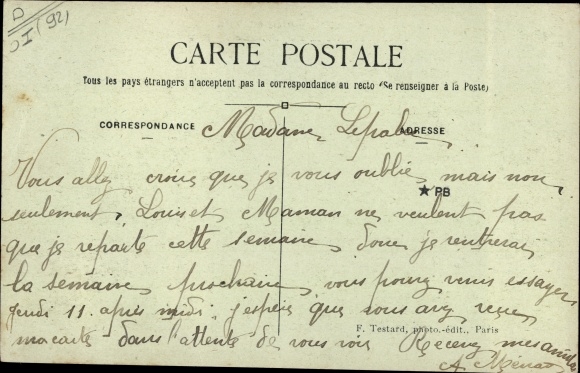 D
(92)
CARTE POSTALE
Tous les pays étrangers n'acceptent pas la correspondance au recto (Se renseigner à la Poste)
CORRESPONDANCE
ADRESSE
Madame
Vous allez croire que je vous oublie, mais non
★ PB
seulement, Louis et Maman ne veulent pas
que je reparte cette semaine donc je rentrerai
la semaine prochaine, vous pouvez venir essayer
jeudi 11 après midi. j'espère que vous avez reçu
F. Testard, photo.-édit., Paris
ma carte dans l'attente de vous voir Recevez mes amitiés
A